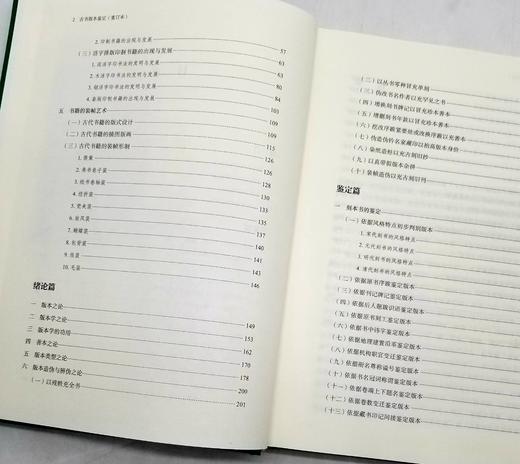 2 古书版本鉴定（重订本）
2.印制书籍的出现与发展 57
（三）活字排版印制书籍的出现与发展 77
1.泥活字印书法的发明与发展 77
2.木活字印书法的发明与发展 80
3.铜活字印书法的发明与发展 84
4.套版印制书籍的出现与发展 103
五 书籍的装帧艺术 109
（一）古代书籍的版式设计 109
（二）古代书籍的插图版画 115
（三）古代书籍的装帧形制 126
1.简策 128
2.帛书卷子装 130
3.纸书卷轴装 131
4.经折装 134
5.梵夹装 135
6.旋风装 137
7.蝴蝶装 140
8.包背装 143
9.线装 145
10.毛装 146
绪论篇
一 版本之论 149
二 版本学之论 151
三 版本学的功用 153
四 善本之论 162
五 版本类型之论 170
六 版本造伪与辨伪之论 178
（一）以残胜充全书 209
201
（二）以丛书零种冒充单刻
（三）伪改书名作者以充罕见之书
（四）增换刻书牌记以冒充珍本善本
（五）增删刻书年款以冒充珍本善本
（六）挖改序跋紧要处或改换序跋以充善本
（七）伪造伪钤名家藏印以抬高版本身价
（八）染纸造蛀以充古刻旧抄
（九）以真带假版本杂拼
（十）装帧造伪以充古刻旧刊
鉴定篇
一 刻本书的鉴定
（一）依据风格特点初步判别版本
1.宋代刻书的风格特点
2.元代刻书的风格特点
3.明代刻书的风格特点
4.清代刻书的风格特点
（二）依据原书序跋鉴定版本
（三）依据刊记牌记鉴定版本
（四）依据后人题跋识语鉴定版本
（五）依据原书刻工鉴定版本
（六）依据书中讳字鉴定版本
（七）依据地理建置沿革鉴定版本
（八）依据机构职官变迁鉴定版本
（九）依据避名尊称谥号鉴定版本
（十）依据书名冠词称谓鉴定版本
（十一）依据卷端上下题名鉴定版本
（十二）依据卷数变迁鉴定版本
（十三）依据藏书印记间接鉴定版本